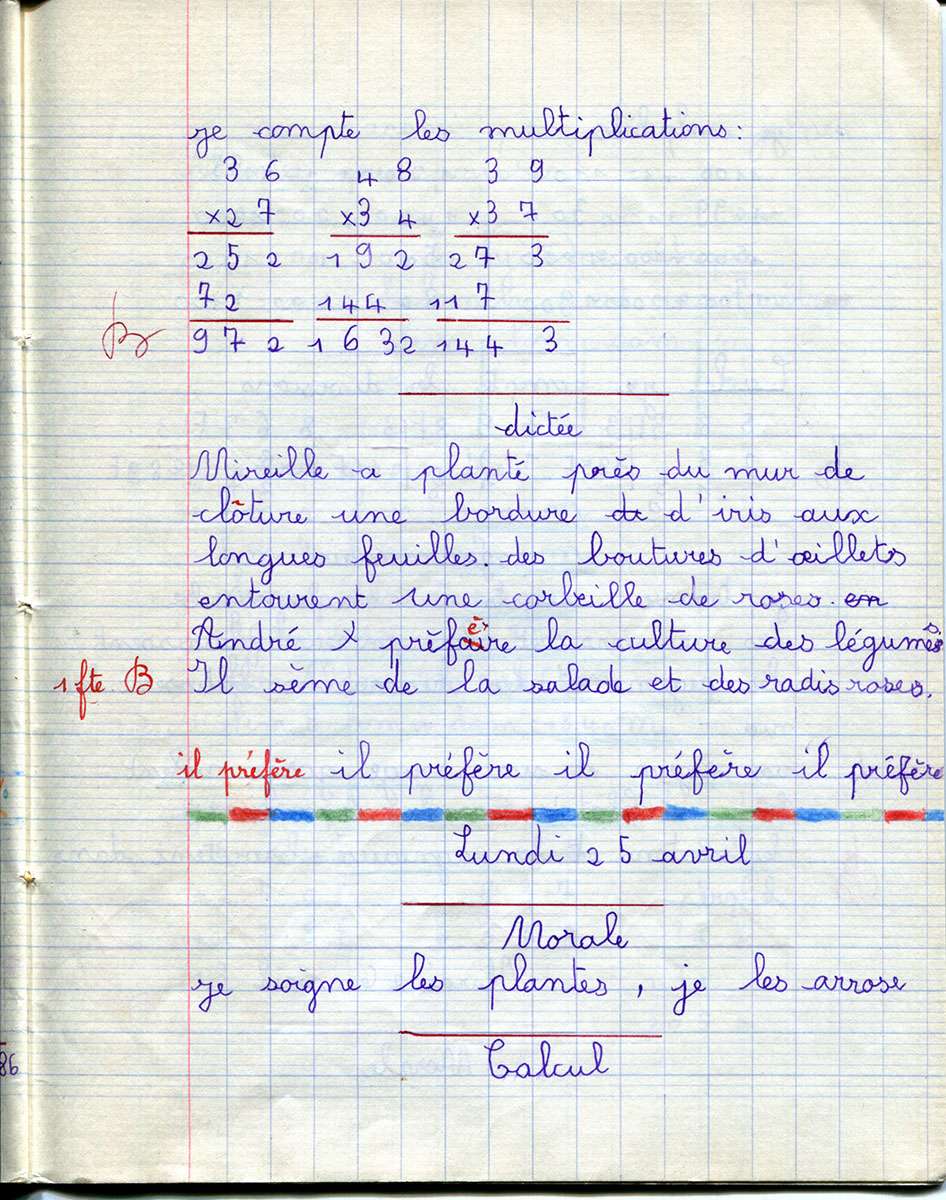 je compte les multiplications:
3 6 4 8 3 9
x2 7 x3 4 x3 7
2 5 2 1 9 2 2 7 3
7 2 1 4 4 1 1 7
B 9 7 2 1 6 3 2 1 4 4 3
dictée
Mireille a planté près du mur de
clôture une bordure de d'iris aux
longues feuilles. des boutures d'œillets
entourent une corbeille de roses. en
André préfère la culture des légumes
1 fte B Il sème de la salade et des radis roses.
il préfère il préfère il préfère il préfère
Lundi 25 avril
Morale
je soigne les plantes, je les arrose
Calcul
86